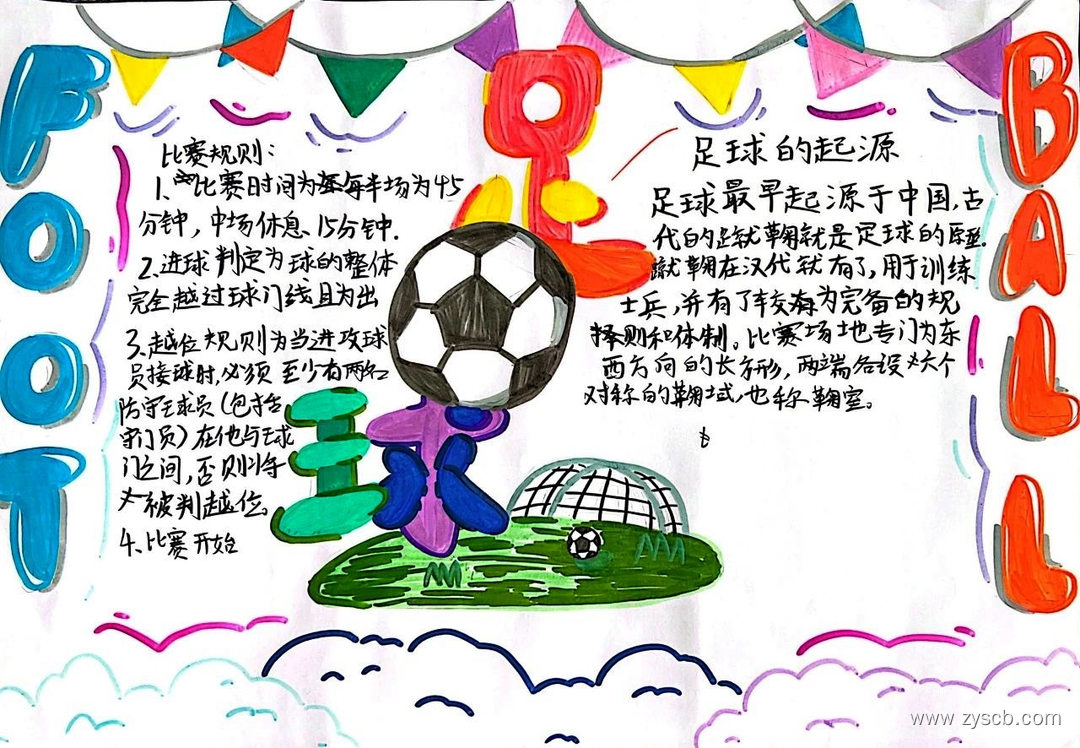 FOOT
比赛规则:
1.比赛时间为每半场为45
分钟,中场休息15分钟.
2.进球判定为球的整体
完全越过球门线且为出
3.越位规则为当进攻球
员接球时,必须至少有两名
防守球员(包括
守门员)在他与球
门之间,否则将
被判越位。
4.比赛开始
足球
足球的起源
足球最早起源于中国,古
代的蹴鞠就是足球的原型.
蹴鞠在汉代就有了,用于训练
士兵,并有了较为完备的规
则和体制。比赛场地专门为东
西方向的长方形,两端各设六个
对称的鞠域,也称鞠室。
BALL
www.zyscb.com